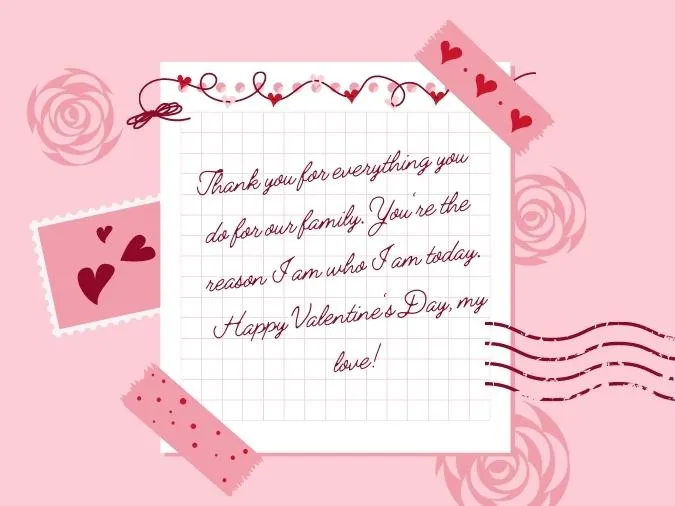 Thank you for everything you
do for our family. You're the
reason I am who I am today.
Happy Valentine's Day, my
love!